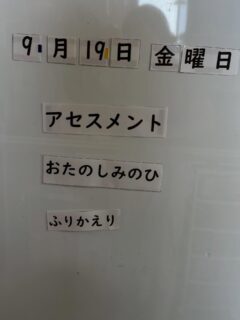 9月19日 金曜日
アセスメント
おたのしみのひ
ふりかえり